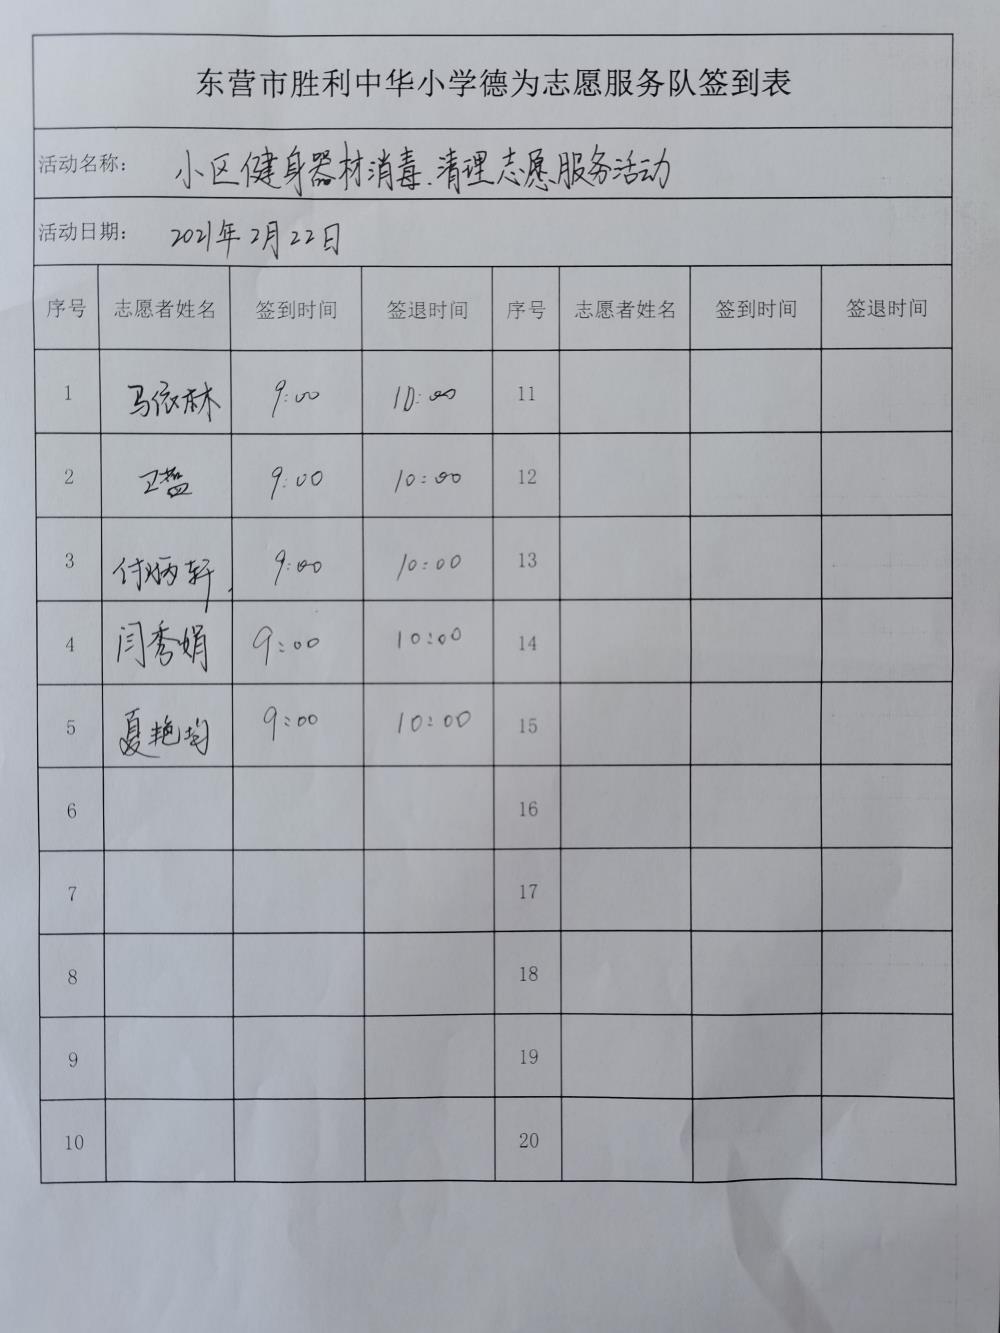 东营市胜利中华小学德为志愿服务队签到表
活动名称： 小区健身器材消毒、清理志愿服务活动
活动日期： 2021年2月22日
序号 志愿者姓名 签到时间 签退时间 序号 志愿者姓名 签到时间 签退时间
1 马依林 9:00 10:00 11
2 9:00 10:00 12
3 付炳轩 9:00 10:00 13
4 闫秀娟 9:00 10:00 14
5 夏艳均 9:00 10:00 15
6 16
7 17
8 18
9 19
10 20